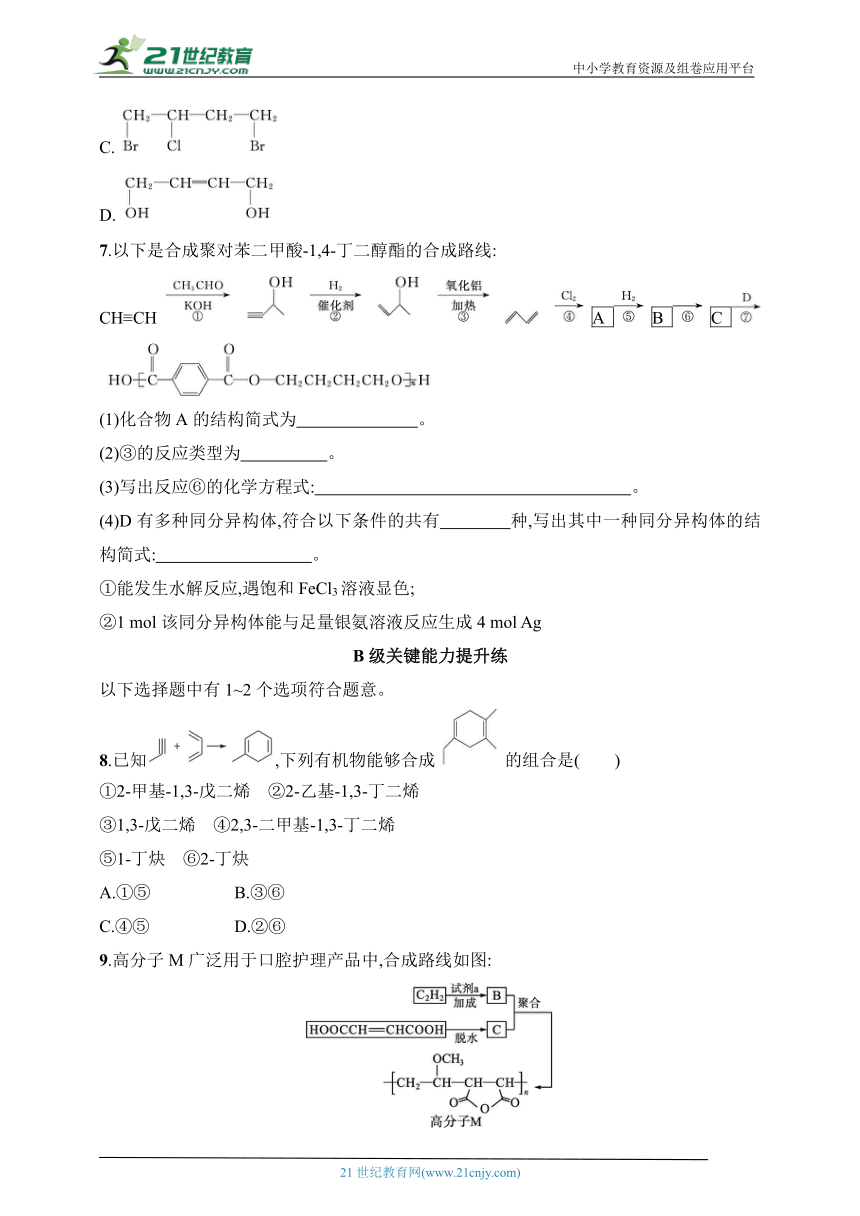 21世纪教育
WWW.21CNJY.COM
中小学教育资源及组卷应用平台
CH₂—CH—CH₂—CH₂
C. Br Cl Br
CH₂—CH═CH—CH₂
D. OH OH
7.以下是合成聚对苯二甲酸-1,4-丁二醇酯的合成路线:
CH≡CH CH₃CHO KOH ① OH H₂ 催化剂 ② OH 氧化铝 加热 ③ Cl₂ ④ A H₂ ⑤ B ⑥ C D ⑦
HO[C(O)—C(O)—O—CH₂CH₂CH₂CH₂O]ₙH
(1)化合物A的结构简式为 。
(2)③的反应类型为 。
(3)写出反应⑥的化学方程式: 。
(4)D有多种同分异构体,符合以下条件的共有 种,写出其中一种同分异构体的结
构简式: 。
①能发生水解反应,遇饱和FeCl₃溶液显色;
②1 mol该同分异构体能与足量银氨溶液反应生成4 mol Ag
B级关键能力提升练
以下选择题中有1~2个选项符合题意。
8.已知 + → ,下列有机物能够合成 的组合是( )
①2-甲基-1,3-戊二烯 ②2-乙基-1,3-丁二烯
③1,3-戊二烯 ④2,3-二甲基-1,3-丁二烯
⑤1-丁炔 ⑥2-丁炔
A.①⑤ B.③⑥
C.④⑤ D.②⑥
9.高分子M广泛用于口腔护理产品中,合成路线如图:
C₂H₂ 试剂a 加成 B 聚合
HOOCCH═CHCOOH 脱水 C
OCH₃
[CH₂—CH—CH—CH]ₙ
O O O
高分子M
21世纪教育网(www.21cnjy.com)